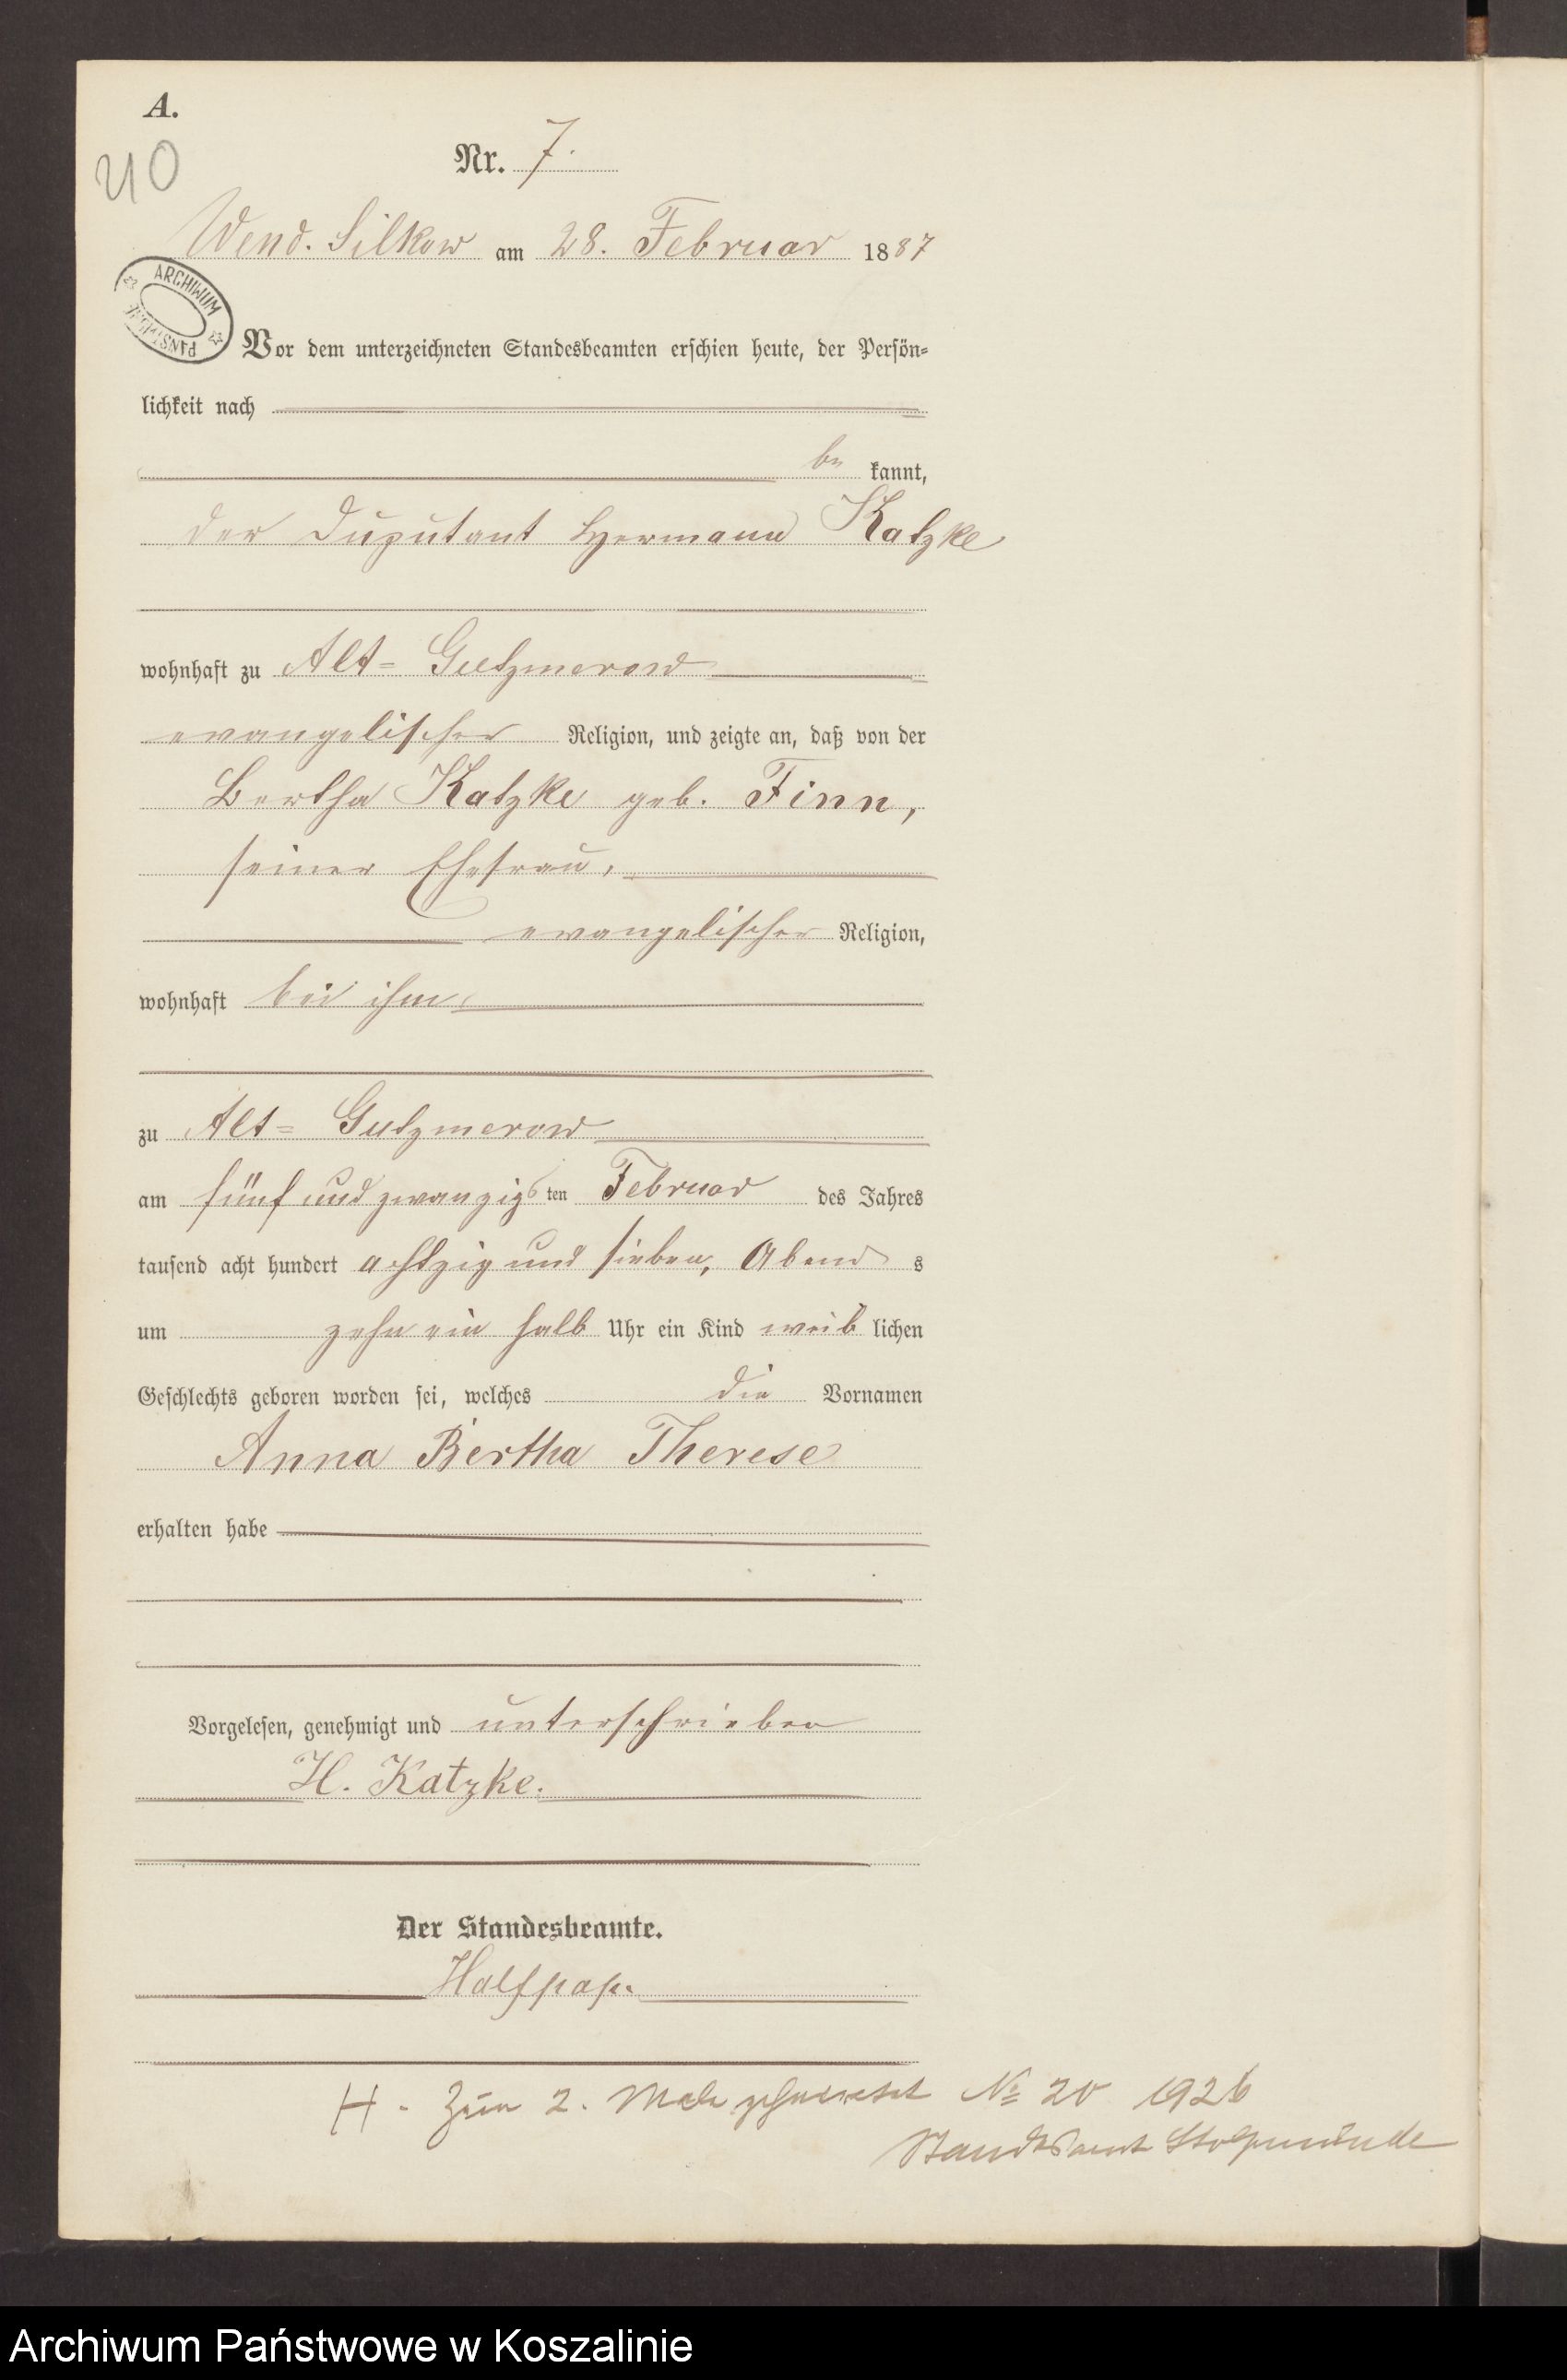 A.
40
Nr. 7.
Wend. Silkow am 28. Februar 1887
ARCHIWUM PAŃSTWOWE
Vor dem unterzeichneten Standesbeamten erschien heute, der Persön=
lichkeit nach
be kannt,
der Deputant Hermann Katzke
wohnhaft zu Alt= Gutzmerow
evangelischer Religion, und zeigte an, daß von der
Bertha Katzke geb. Finn,
seiner Ehefrau,
evangelischer Religion,
wohnhaft bei ihm,
zu Alt= Gutzmerow
am fünf und zwanzigs ten Februar des Jahres
tausend acht hundert achtzig und sieben, Abend s
um zehn ein halb Uhr ein Kind weib lichen
Geschlechts geboren worden sei, welches die Vornamen
Anna Bertha Therese
erhalten habe
Vorgelesen, genehmigt und unterschrieben
H. Katzke.
Der Standesbeamte.
Halfpap.
H. Zum 2. Male geheiratet № 20 1926
Standesamt Stolpmünde
Archiwum Państwowe w Koszalinie